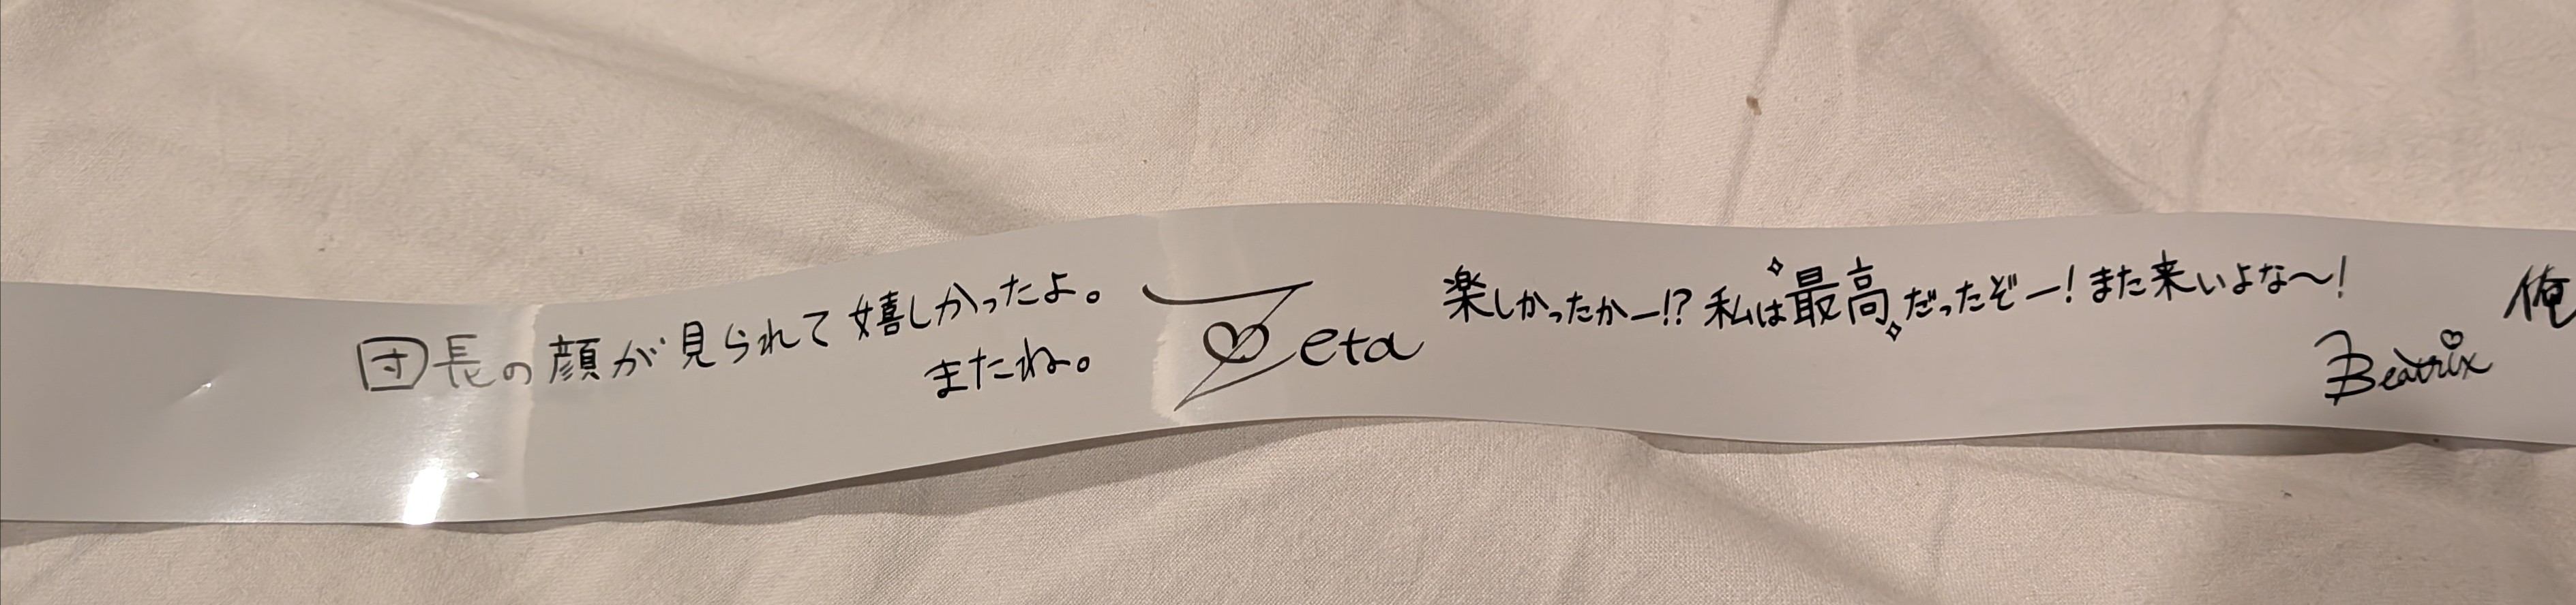 団長の顔が見られて嬉しかったよ。
またね。
Zeta
楽しかったかー!? 私は最高だったぞー！また来いよな〜！
Beatrix
俺